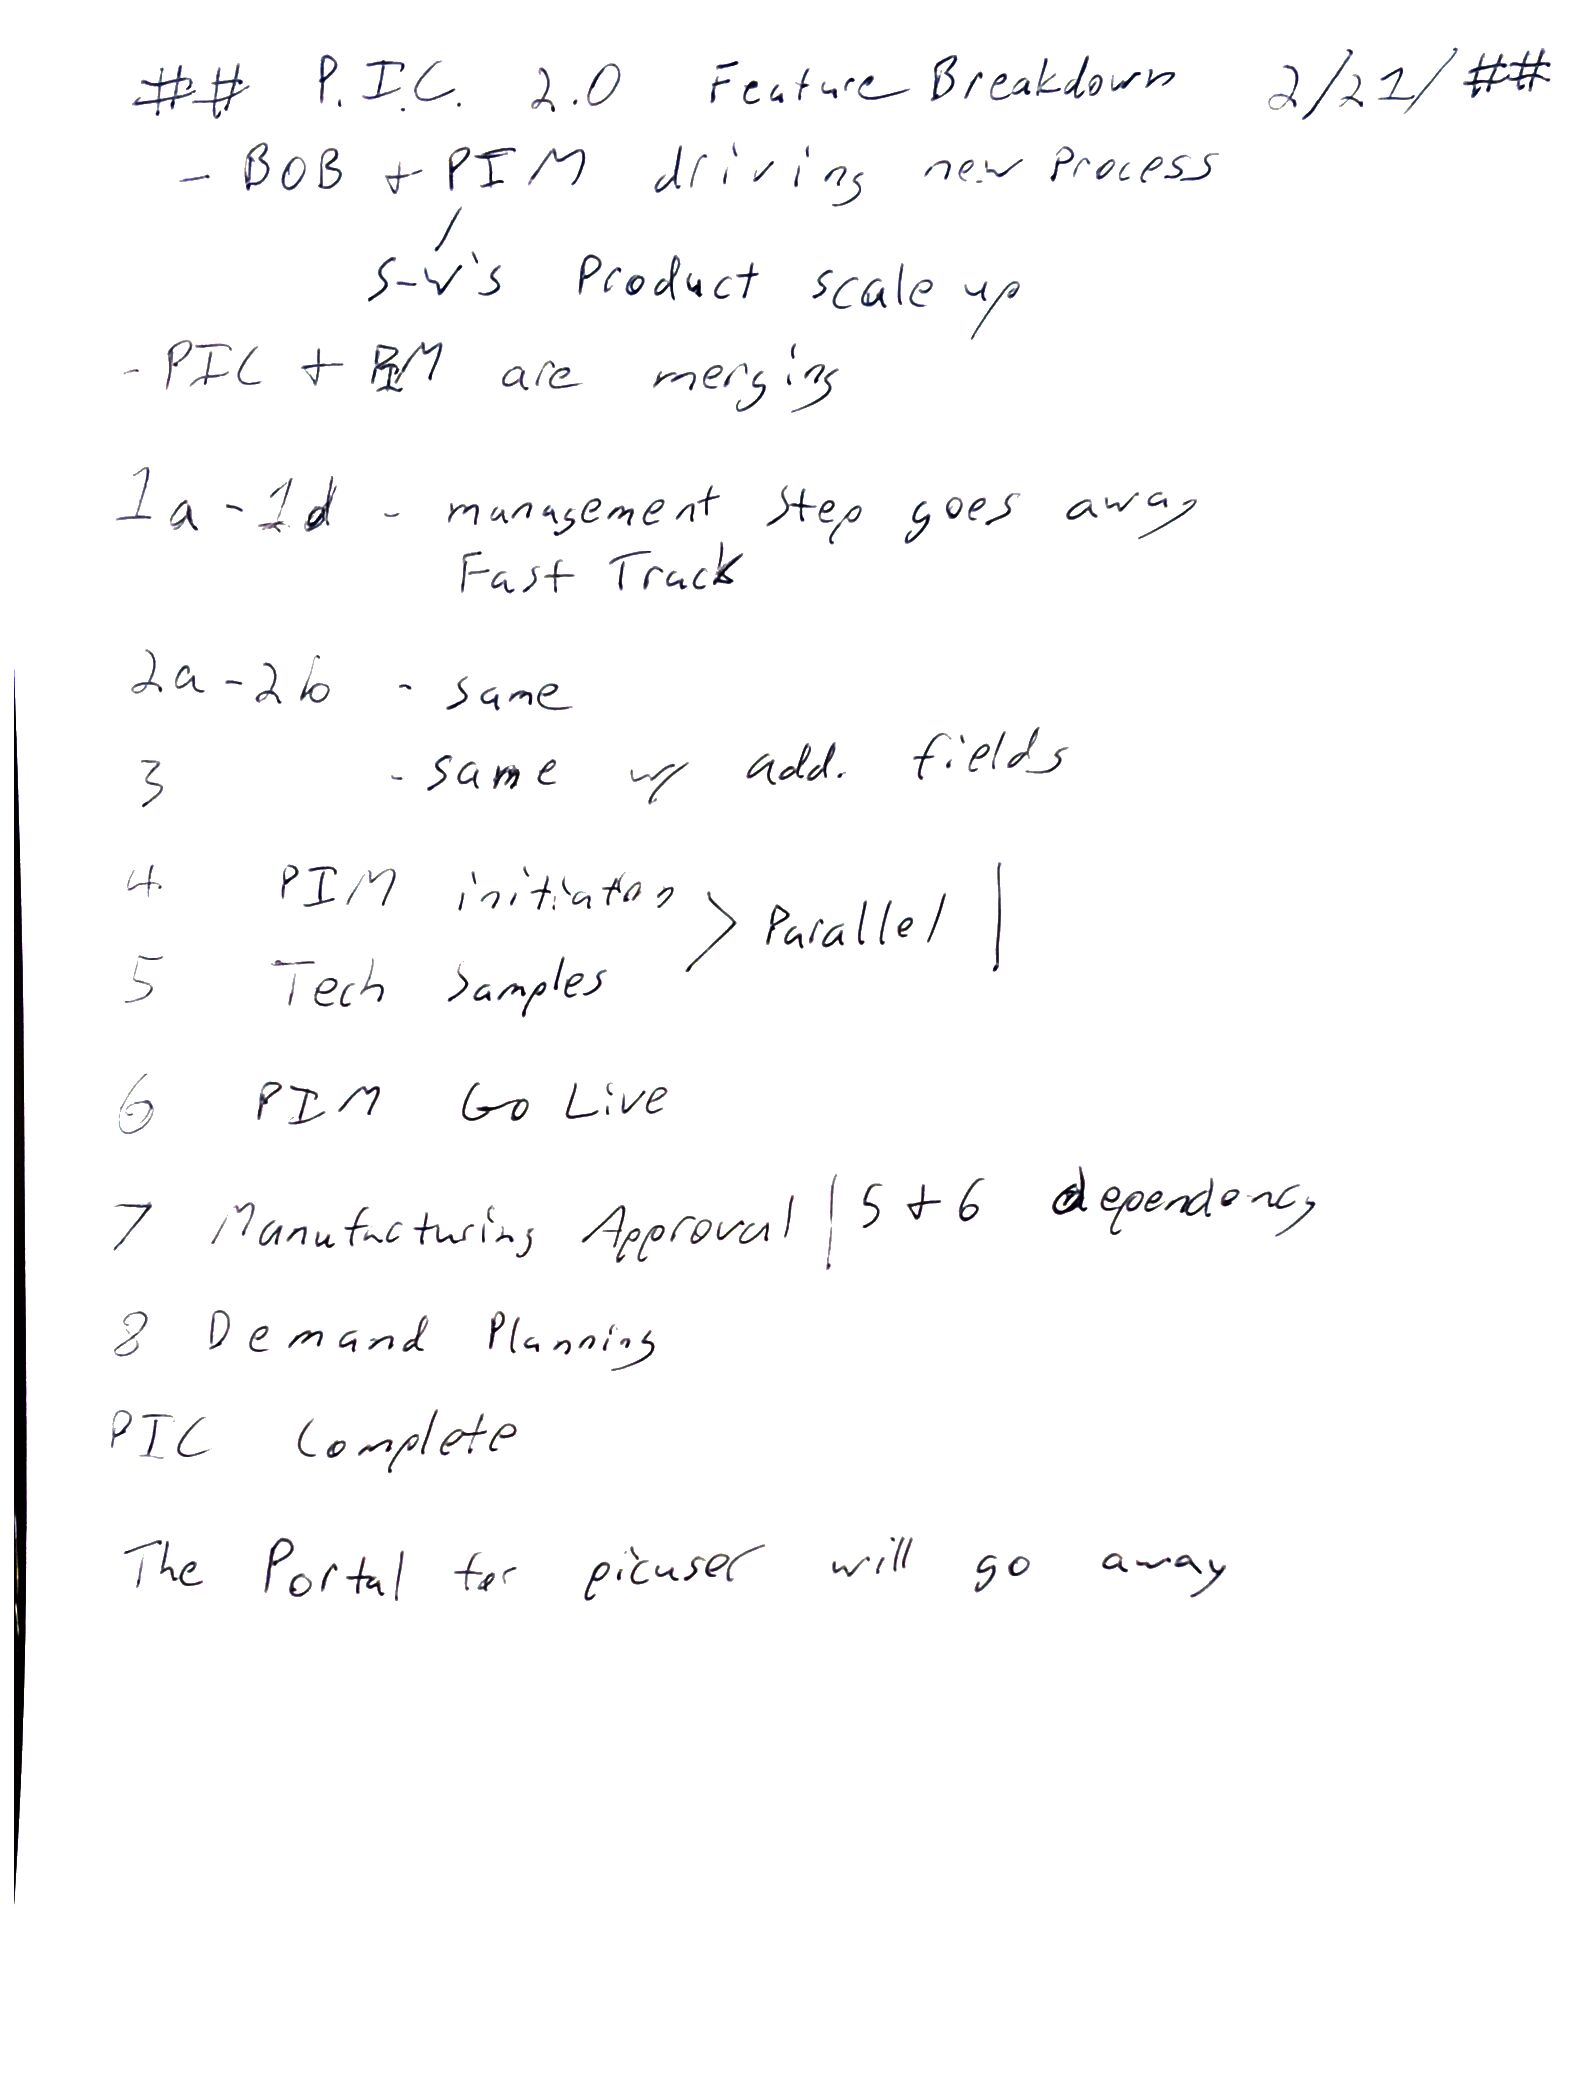 ## P.I.C. 2.0 Feature Breakdown 2/21/##
- BOB + PIM driving new Process
S-W's Product scale up
- PIC + PIM are merging
1a - 1d - management step goes away
Fast Track
2a - 2b - same
3 - same w/ add. fields
4 PIM initiation
> Parallel |
5 Tech Samples
6 PIM Go Live
7 Manufacturing Approval | 5 + 6 dependency
8 Demand Planning
PIC Complete
The Portal for picuser will go away